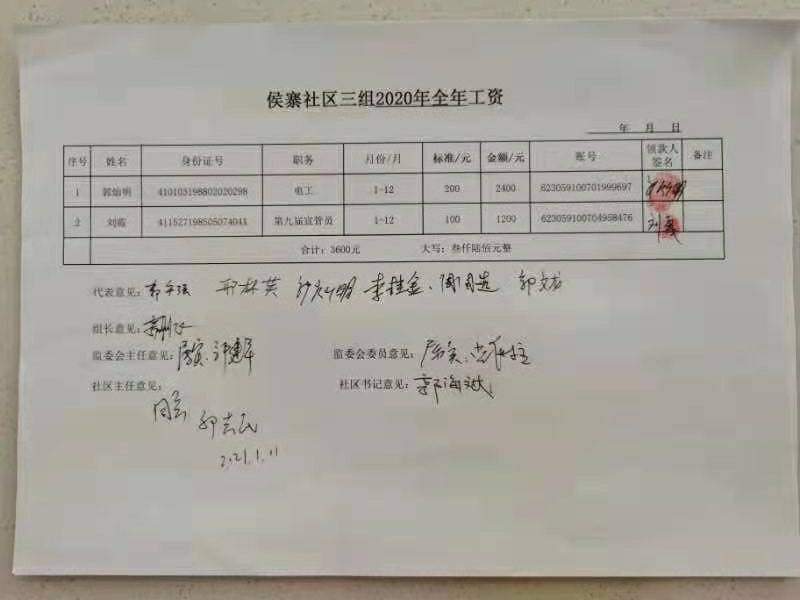 侯寨社区三组2020年全年工资
年 月 日
序号 姓名 身份证号 职务 月份/月 标准/元 金额/元 账号 领款人签名 备注
1 郭灿明 410103198802020298 电工 1-12 200 2400 623059100701999697
2 刘霞 41152719850507404X 第九届宣管员 1-12 100 1200 623059100704958476 刘霞
合计：3600元 大写：叁仟陆佰元整
代表意见：
组长意见：
监委会主任意见： 监委会委员意见：
社区主任意见： 社区书记意见：郭海斌
同意
2021.1.11